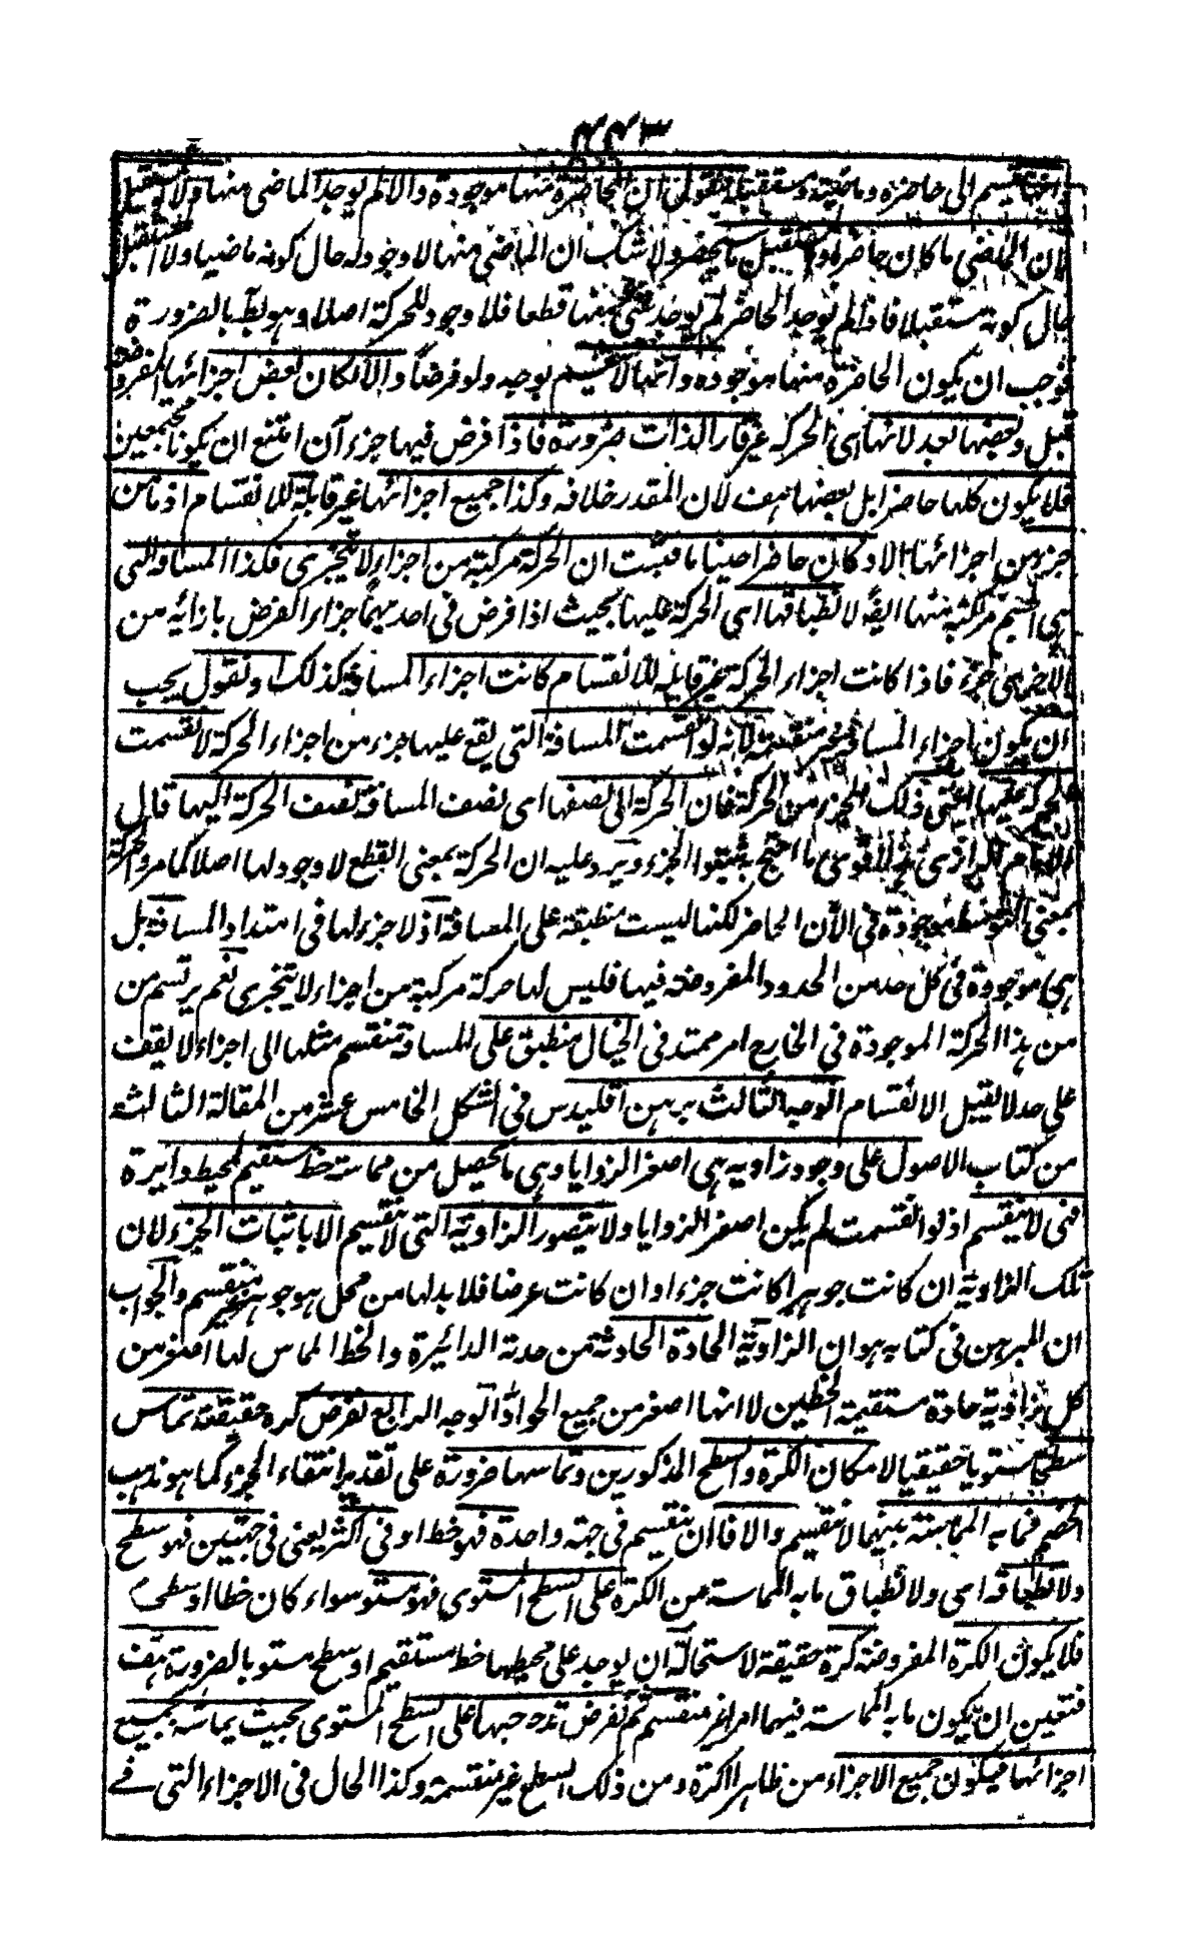 ٤٤٣
انها تنقسم الى حاضرة وماضية ومستقبلة فنقول ان الحاضرة منها موجودة والا لم يوجد الماضى منها ولا المستقبل
لان الماضى ما كان حاضرا والمستقبل ما سيحضر ولا شك ان الماضى منها لا وجود له حال كونه ماضيا ولا المستقبل
حال كونه مستقبلا فاذا لم يوجد الحاضر لم يوجد شى منها قطعا فلا وجود للحركة اصلا وهو بط بالضرورة
فوجب ان يكون الحاضرة منها موجودة وانها لا تنقسم بوجه ولو فرضا والا لكان بعض اجزائها المفروضة
قبل وبعضها بعد لانها اى الحركة غير قار الذات ضرورة فاذا فرض فيها جزءان امتنع ان يكونا مجتمعين
فلا يكون كلها حاضرا بل بعضها هف لان المقدر خلافه وكذا جميع اجزائها غير قابلة للانقسام اذ ما من
جزء من اجزائها الا وكان حاضرا حينا ما فثبت ان الحركة مركبة من اجزاء لا يتجزى فكذا المسافة التى
هى الجسم مركبة منها ايضا لانطباقها اى الحركة عليها بحيث اذا فرض فى احدهما جزء الفرض بازائه من
الاخرى جزء فاذا كانت اجزاء الحركة غير قابلة للانقسام كانت اجزاء المسافة كذلك او نقول يجب
ان يكون اجزاء المسافة غير منقسمة لانه لو انقسمت المسافة التى يقع عليها جزء من اجزاء الحركة لانقسمت
الحركة عليها اعنى ذلك الجزء من الحركة فان الحركة الى نصفها اى نصف المسافة نصف الحركة اليها قال
الامام الرازى هذا اقوى ما احتج به مثبتوا الجزء ويرد عليه ان الحركة بمعنى القطع لا وجود لها اصلا كما مر والحركة
بمعنى التوسط موجودة فى الآن الحاضر لكنها ليست منطبقة على المسافة اذ لا جزء لها فى امتداد المسافة بل
هى موجودة فى كل حد من الحدود المفروضة فيها فليس لها حركة مركبة من اجزاء لا يتجزى نعم يرتسم من
من هذا الحركة الموجودة فى الخارج امر ممتد فى الخيال منطبق على المسافة تنقسم مثلها الى اجزاء لا يقف
على حد لا يقبل الانقسام الوجه الثالث برهن اقليدس فى الشكل الخامس عشر من المقالة الثالثة
من كتاب الاصول على وجود زاويه هى اصغر الزوايا وهى ما يحصل من مماسة خط مستقيم لمحيط دايرة
فهى لا ينقسم اذ لو انقسمت لم يكن اصغر الزوايا ولا يتصور الزاوية التى لا تنقسم الا باثبات الجزء لان
تلك الزاوية ان كانت جوهرا كانت جزءا وان كانت عرضا فلا بد لها من محل هو جوهر غير منقسم والجواب
ان المبرهن فى كتابه هو ان الزاوية الحادة الحادثة من حدبة الدائيرة والخط المماس لها اصغر من
كل زاوية حادة مستقيمة الخطين لا انها اصغر من جميع الحواد الوجه الرابع نفرض كرة حقيقة تماس
سطحا مستويا حقيقيا لامكان الكرة والسطح المذكورين وتماسها ضرورة على تقدير انتفاء الجزء كما هو مذهب
الخصم فما به المماسة بينهما لا ينقسم والا فاان ينقسم فى جهة واحدة فهو خط او فى اكثر يعنى فى جهتين فهو سطح
ولانطباقه اى ولانطباق ما به المماسة من الكرة على السطح المستوى فهو مستو سواء كان خطا او سطحا
فلا يكون الكرة المفروضة كرة حقيقة لاستحالة ان يوجد على محيطها خط مستقيم او سطح مستو بالضرورة هف
فتعين ان يكون ما به المماسة فيهما امرا غير منقسم ثم نفرض تدحرجها على السطح المستوى بحيث يماسه بجميع
اجزائها فيكون جميع الاجزاء من ظاهر الكرة ومن ذلك السطح غير منقسمة وكذا الحال فى الاجزاء التى فى